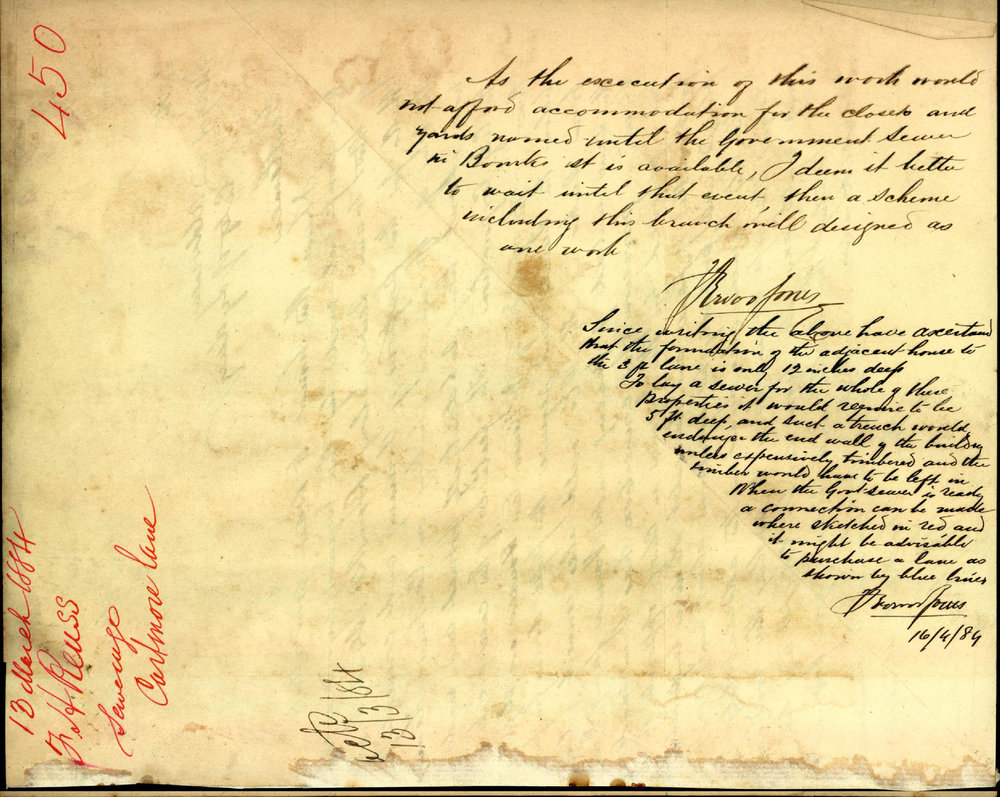 As the excecution of this work would
not afford accommodation for the closets and
yards named until the Government Sewer
in Bourke st is available, I deem it better
to wait until that event, then a scheme
including this branch will designed as
one work
Jones
Since writing the above have ascertand
that the foundation of the adjacent house to
the 3 ft lane is only 12 inches deep
To lay a sewer for the whole of these
properties it would require to be
5 ft deep, and such a trench would
endanger the end wall of the building
unless expensively timbered and the
timber would have to be left in
When the Govt sewer is ready
a connection can be made
where sketched in red and
it might be advisable
to purchase a lane as
shown by blue lines
Jones
16/4/84
450
13 March 1884
F H Reuss
Sewerage
Cashmore Lane
13/3/84